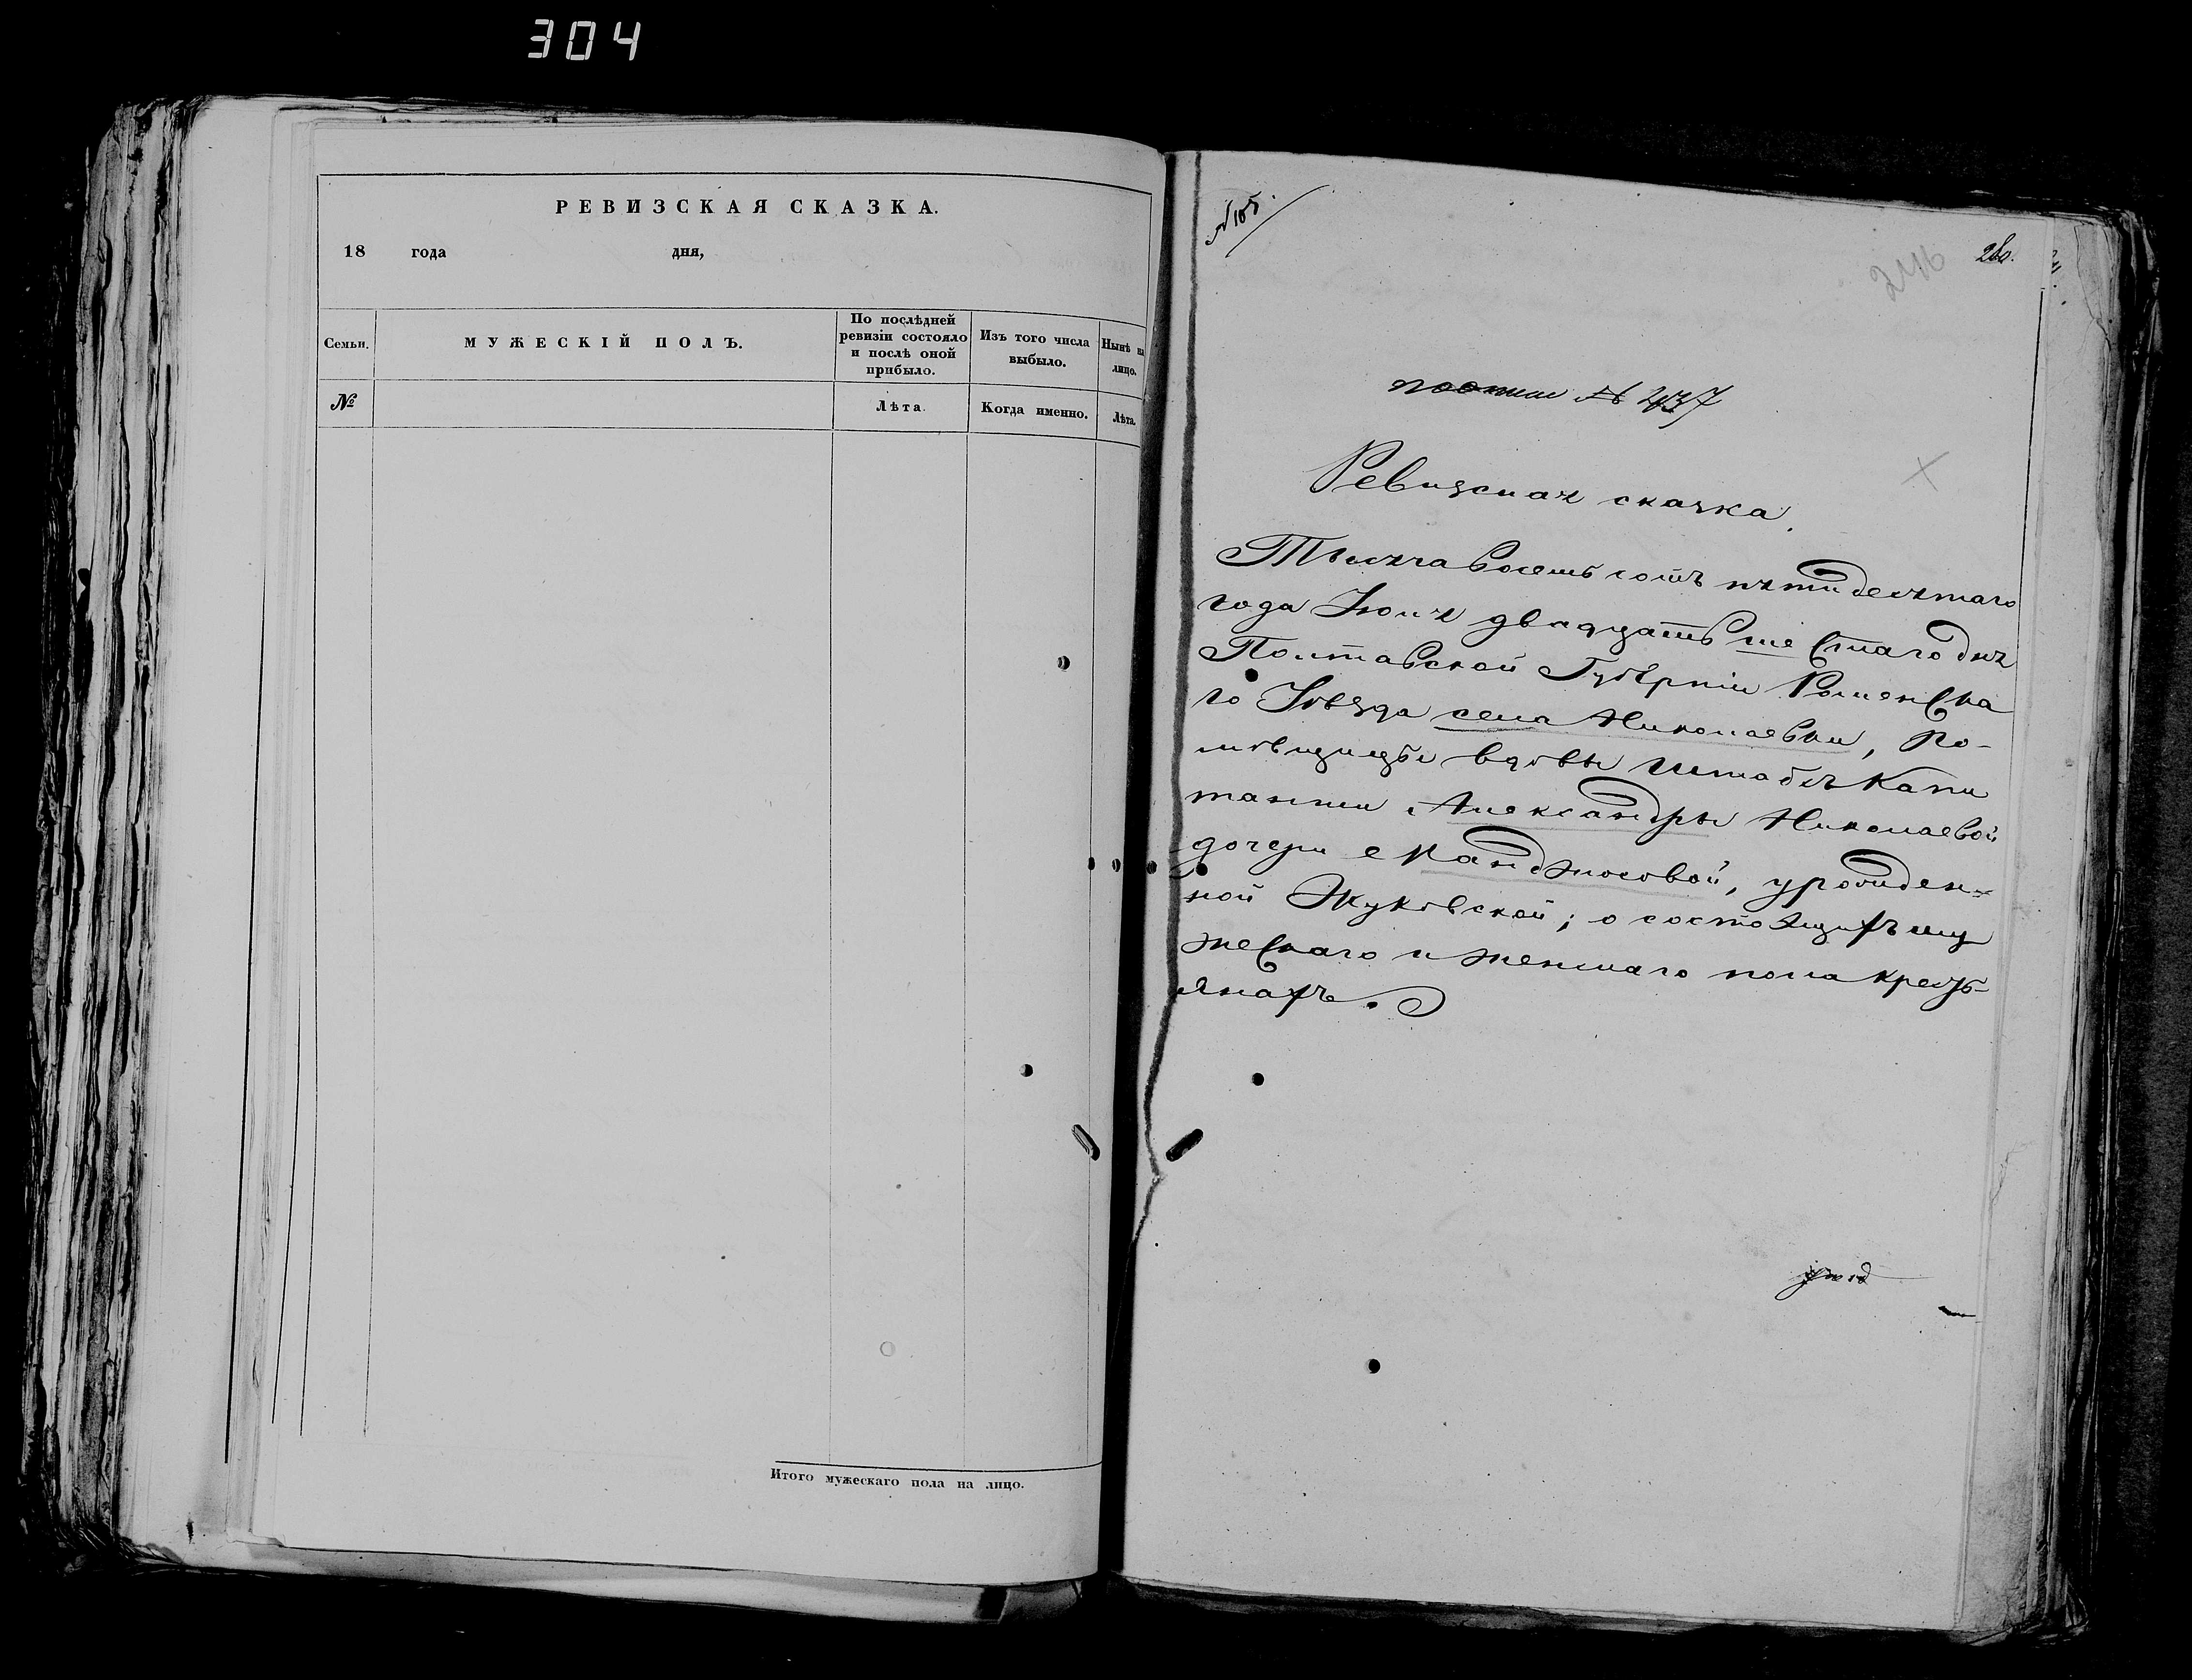 304
РЕВИЗСКАЯ СКАЗКА.
18 года дня,
Семьи.
МУЖЕСКІЙ ПОЛЪ.
По послѣдней
ревизіи состояло
и послѣ оной
прибыло.
Изъ того числа
выбыло.
Нынѣ на
лицо.
№
Лѣта.
Когда именно.
Лѣта.
Итого мужескаго пола на лицо.
№ 105.
246
280.
№ 237
Ревизская сказка.
Тысяча восемь сотъ пятидесятаго
года Іюня двадцать шестаго дня
Полтавской Губерніи Роменска
го Уѣзда села Николаевки, по-
мѣщицы вдовы штабсъ Капи
танши Александры Николаевой
дочери Манджосовой, урожден-
ной Жуковской; о состоящихъ му
жескаго и женскаго пола кресть-
янахъ.